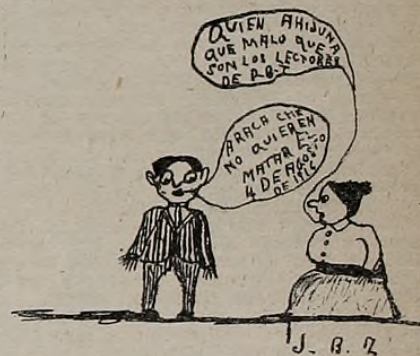 QUIEN AHIJUNA
QUE MALO QUE
SON LOS LECTORES
DE P.B.T
ARACA CHE
NO QUIEREN
MATAR EL
4 DE AGOSTO
DE 1916
J. B. Z